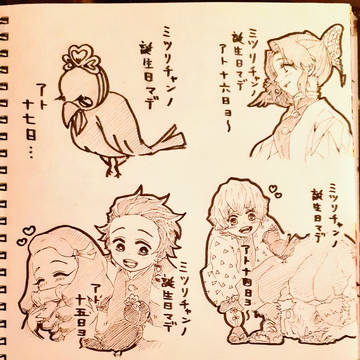 ミツリチャンノ
誕生日マデ
アト
十七日…
ミツリチャンノ
誕生日マデ
アト十六日ヨ〜
ミツリチャンノ
誕生日マデ
アト
十五日ヨ〜
ミツリチャンノ
誕生日マデ
アト十四日ヨ〜